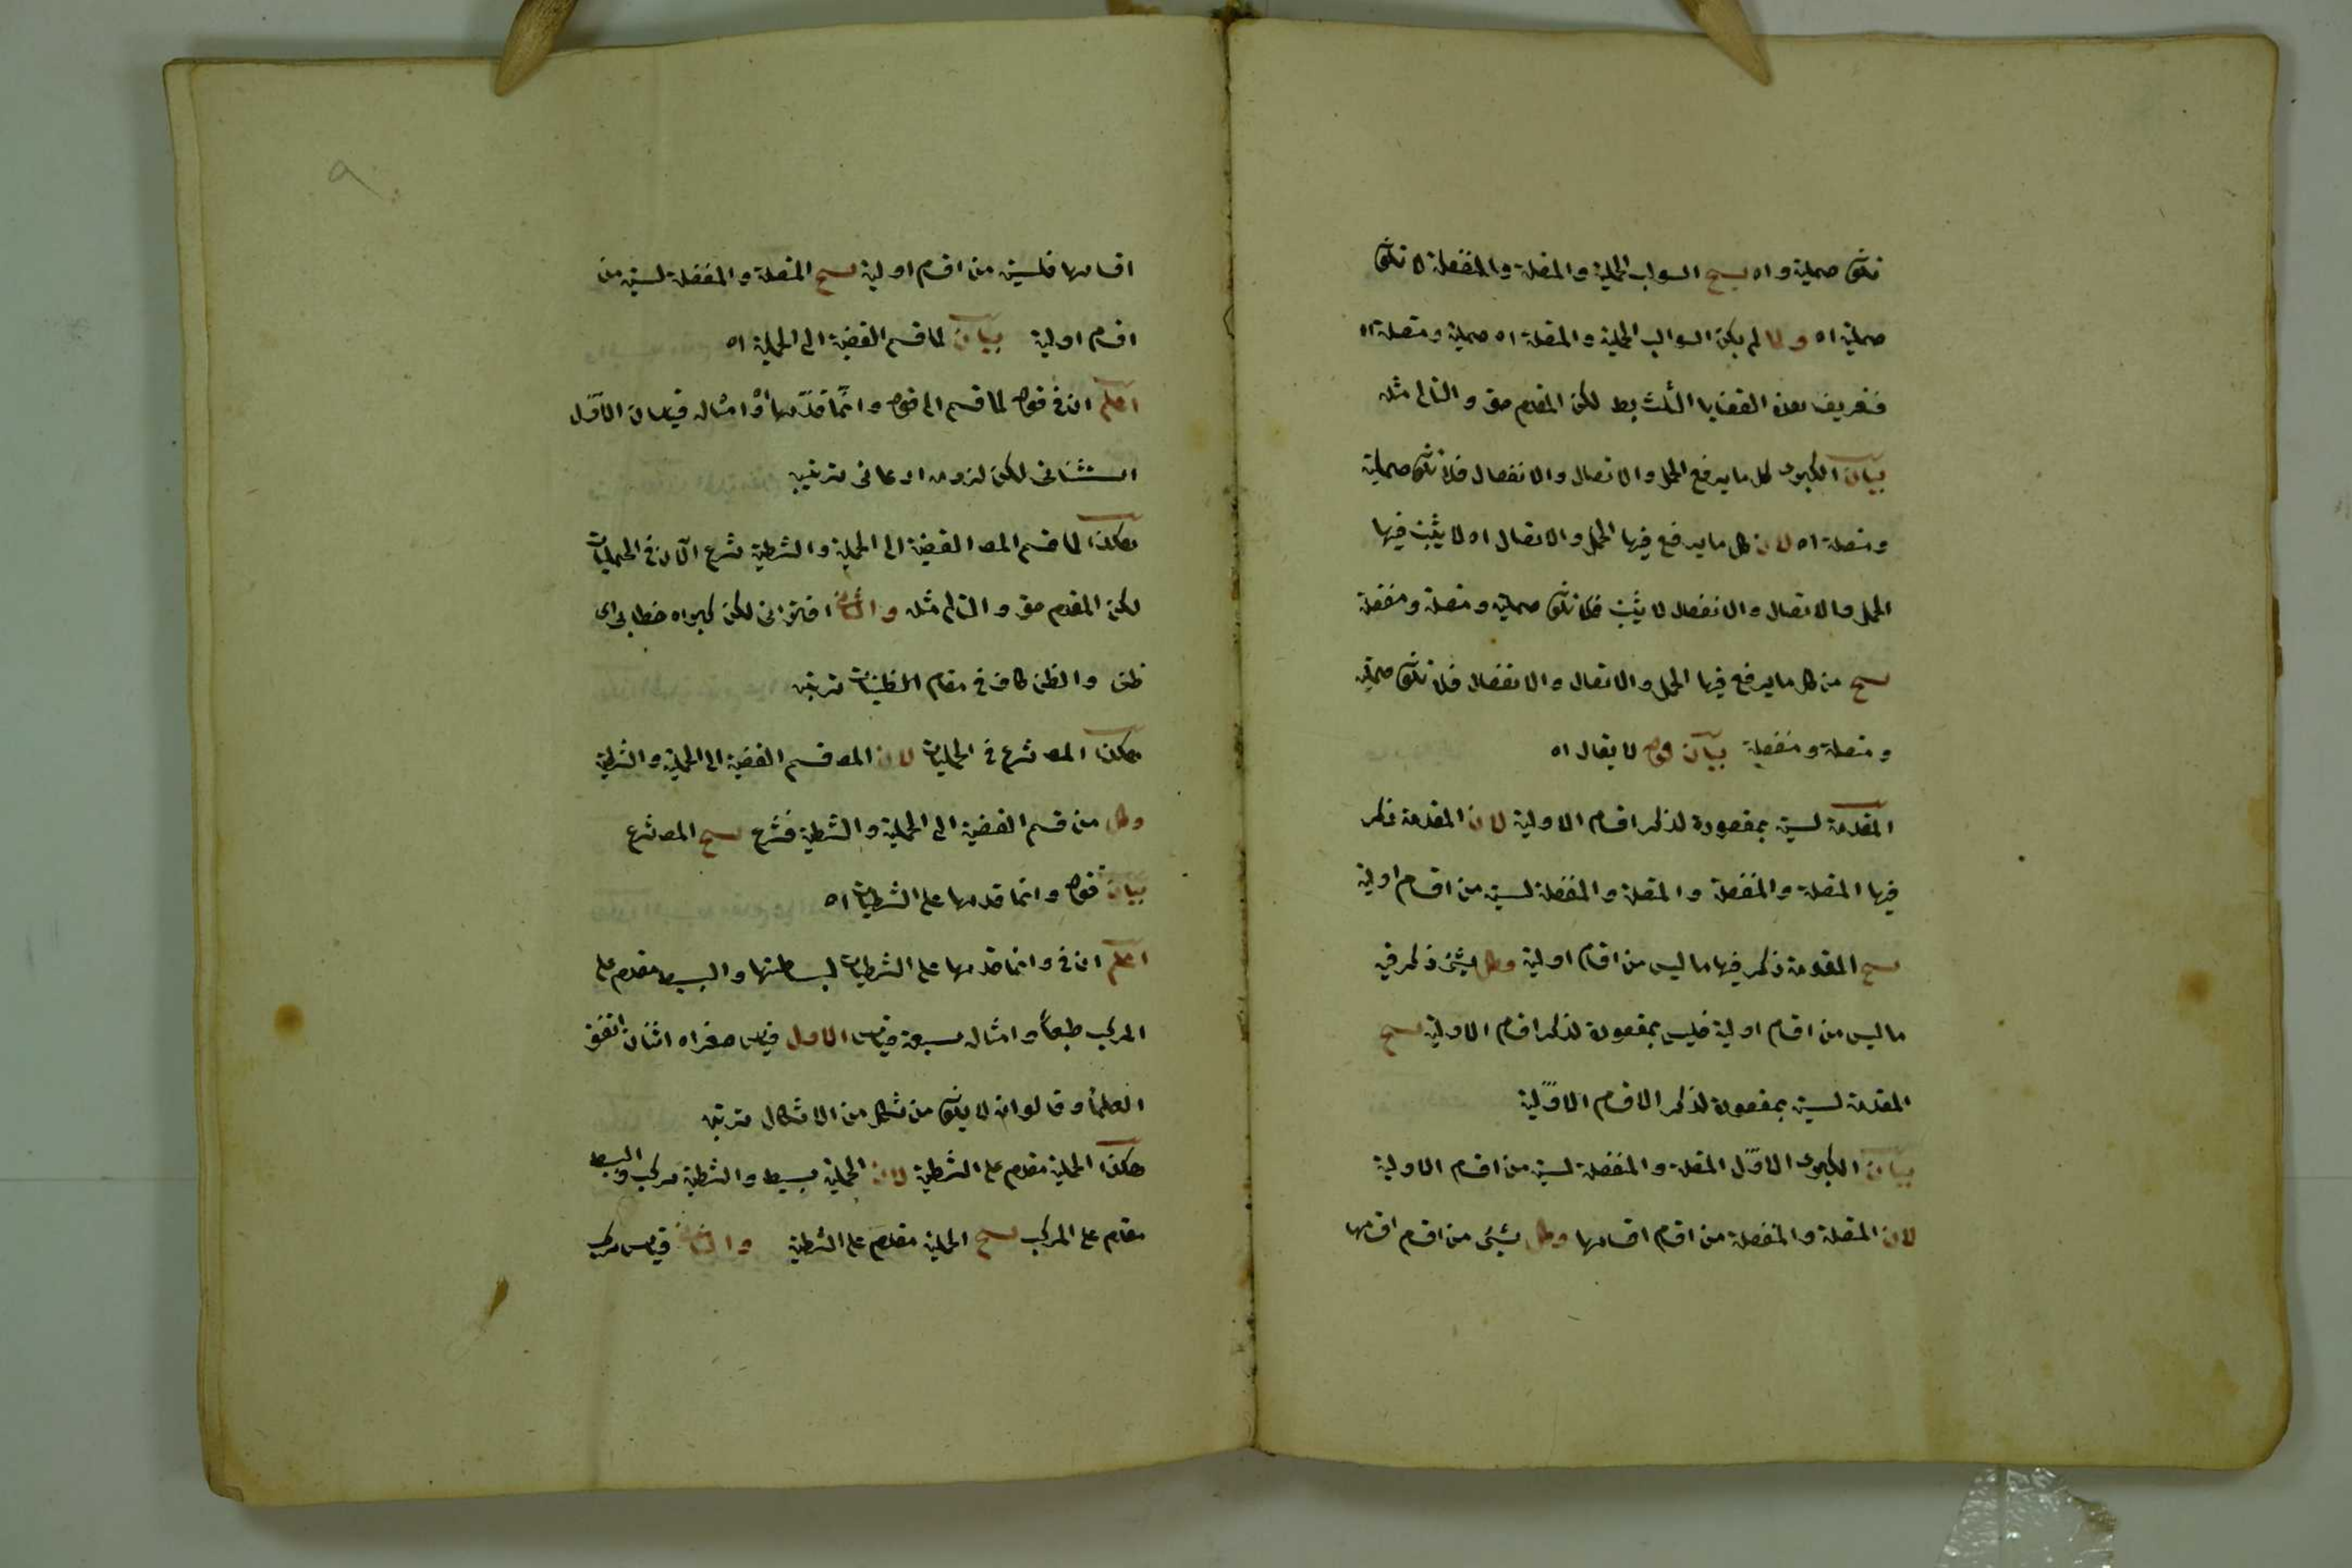 تكون حملية واه ينتج السوالب الحملية والمتصلة والمنفصلة لا تكون
حملية اه ولما لم يكن السوالب الحملية والمتصلة اه حملية ومتصلة اه
فتعريف هذه القضايا الثلث بط لكن المقدم حق والتالى مثله
بيان الكبرى كل ما يرفع الحمل والاتصال والانفصال فلا تكون حملية
ومتصلة اه لان كل ما يرفع فيها الحمل والاتصال اه لا يثبت فيها
الحمل والاتصال والانفصال لا يثبت فلا تكون حملية ومتصلة ومنفصلة
ينتج من كل ما يرفع فيها الحمل والاتصال والانفصال فلا تكون حملية
ومتصلة ومنفصلة بيان قوله لا يقال اه
المقدمة ليست بمقصودة لذكر اقسام الاولية لان المقدمة ذكر
فيها المتصلة والمنفصلة والمتصلة والمنفصلة ليست من اقسام اولية
ينتج المقدمة ذكر فيها ما ليس من اقسام اولية وكل شئ ذكر فيه
ما ليس من اقسام اولية فليس بمقصودة لذكر اقسام الاولية ينتج
المقدمة ليست بمقصودة لذكر الاقسام الاوّلية
بيان الكبرى الاوّل المتصلة والمنفصلة ليست من اقسام الاولية
لان المتصلة والمنفصلة من اقسام اقسامها وكل شئ من اقسام اقسامها
٩
اقسامها فليست من اقسام اولية ينتج المتصلة والمنفصلة ليست من
اقسام اولية بيان لما قسم القضية الى الحملية اه
اعلم ان فى قوله لما قسم الى قوله وانّما قدّمها او امثاله قياسان الاوّل
استثنائى لكن لزومه ادعائى ترتيبه
هكذا لما قسم المص القضية الى الحملية والشرطية شرع الآن فى الحمليات
لكن المقدم حق والتالى مثله والثانى اقترانى لكن كبراه خطابى اى
ظنى والظن كاف فى مقام الظنيات ترتيبه
هكذا المص شرع فى الحمليات لان المص قسم القضية الى الحملية والشرطية
وكل من قسم القضية الى الحملية والشرطية فشرع ينتج المص شرع
بيان قوله وانما قدمها على الشرطيات اه
اعلم ان فى وانما قدمها على الشرطيات لبساطتها والبسيط مقدم على
المركب طبعاً وامثاله سبعة قياس الاول قياس صغراه اثنان اتفق
العلماء وقالوا انه لا يكون من شكل من الاشكال ترتيبه
هكذا الحملية مقدم على الشرطية لان الحملية بسيط والشرطية مركب والبسيط
مقدم على المركب ينتج الحملية مقدم على الشرطية والثانى قياس مركب